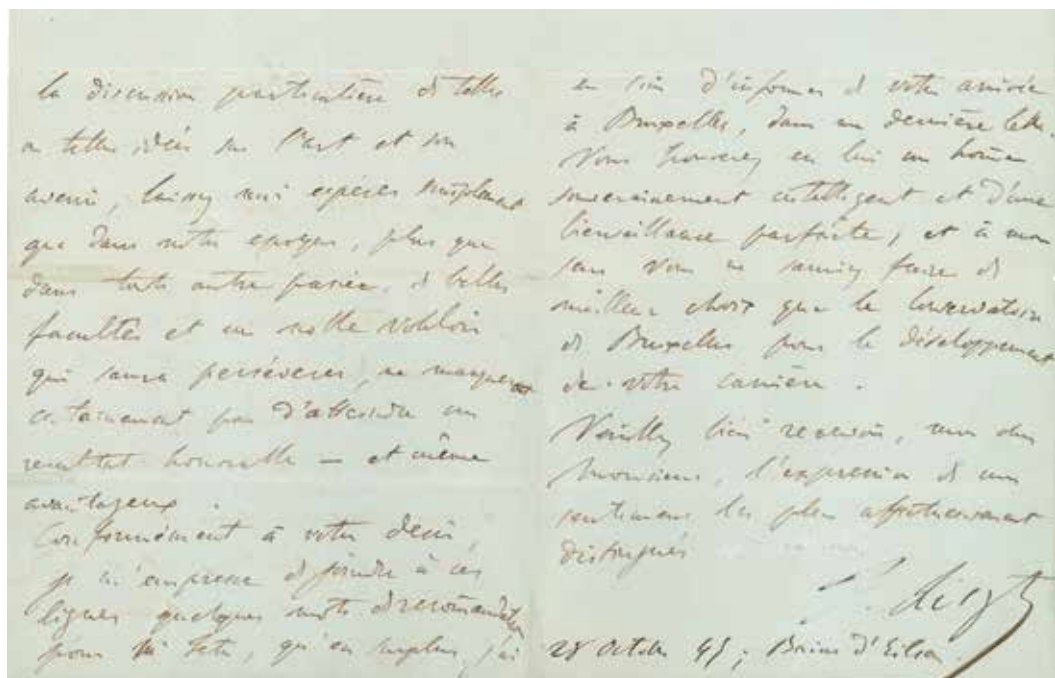 la discussion particulière de telles
ou telles idées sur l'art et son
avenir, laissez moi espérer simplement
que dans notre époque, plus que
dans toute autre passée, de belles
facultés et un noble vouloir
qui saura persévérer, ne manqueront
certainement pas d'atteindre un
resultat honorable — et même
avantageux.
Conformément à votre désir,
je m'empresse de joindre à ces
lignes quelques mots de recommandation
pour Mr Fétis, qu'en surplus j'ai
eu soin d'informer de votre arrivée
à Bruxelles, dans ma dernière lettre.
Vous trouverez en lui un homme
souverainement intelligent et d'une
bienveillance parfaite, et à mon
sens vous ne sauriez faire de
meilleur choix que le Conservatoire
de Bruxelles pour le développement
de votre carrière.
Veuillez bien recevoir, mon cher
Monsieur, l'expression de mes
sentiments les plus affectueusement
distingués
F. Liszt
28 Octobre 45; Bains d'Eilsen.